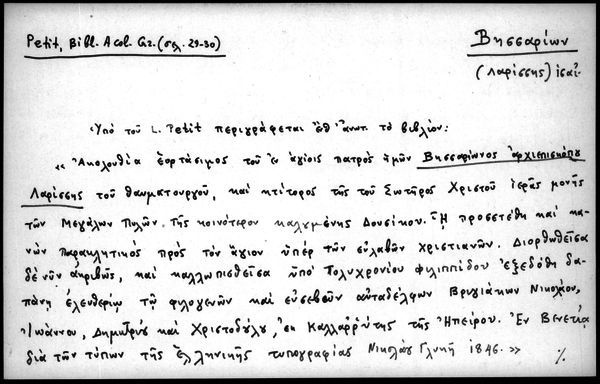 Petit, Bibl. Acol. Gr. (σελ. 29-30)
Βησσαρίων
(Λαρίσσης) ἰσαί.
Ὑπὸ τοῦ L. Petit περιγράφεται ἔνθ' ἀνωτ. τὸ βιβλίον:
« Ἀκολουθία ἑορτάσιμος τοῦ ἐν ἁγίοις πατρὸς ἡμῶν Βησσαρίωνος ἀρχιεπισκόπου
Λαρίσσης τοῦ θαυματουργοῦ, καὶ κτίτορος τῆς τοῦ Σωτῆρος Χριστοῦ ἱερᾶς μονῆς
τῶν Μεγάλων Πυλῶν. Τῆς κοινότερον καλυμένης Δουσίκου. Ἧ προσετέθη καὶ κα-
νὼν παρακλητικὸς πρὸς τὸν ἅγιον ὑπὲρ τῶν εὐλαβῶν χριστιανῶν. Διορθωθεῖσα
δὲ νῦν ἀκριβῶς, καὶ καλλωπισθεῖσα ὑπὸ Πολυχρονίου Φιλιππίδου ἐξεδόθη δα-
πάνῃ ἐλευθερίῳ τῶν φιλογενῶν καὶ εὐσεβῶν αὐταδέλφων Βριγιάκων Νικολάου,
Ἰωάννου, Δημητρίου καὶ Χριστοδούλου, ἐκ Καλλαρρύτης τῆς Ἠπείρου. Ἐν Βενετίᾳ
διὰ τῶν τύπων τῆς Ἑλληνικῆς τυπογραφίας Νικολάου Γλυκῆ 1846. » %